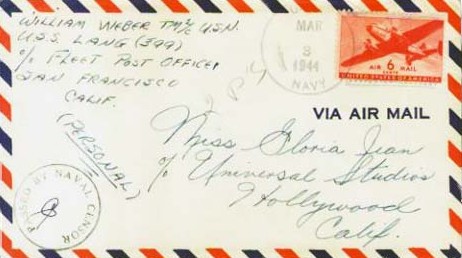 WILLIAM WEBER TM2/c U.S.N.
U.S.S. LANG (399)
c/o FLEET POST OFFICE,
SAN FRANCISCO
CALIF.
(PERSONAL)
PASSED BY NAVAL CENSOR
MAR
3
1944
NAVY
AIR 6 MAIL
CENTS
UNITED STATES OF AMERICA
VIA AIR MAIL
Miss Gloria Jean
c/o Universal Studios
Hollywood
Calif.